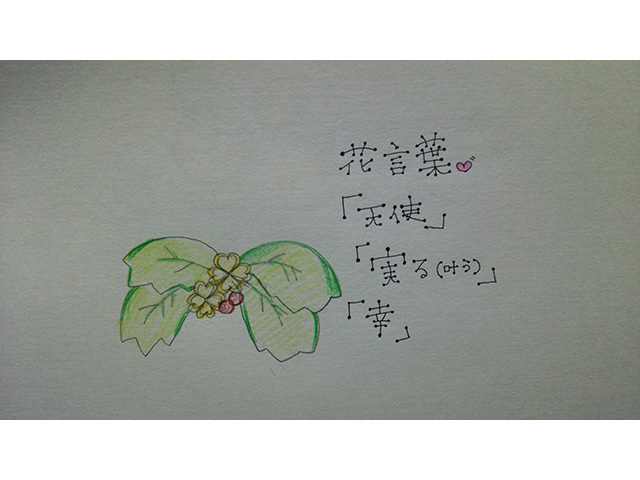 花言葉
「天使」
「実る(叶う)」
「幸」